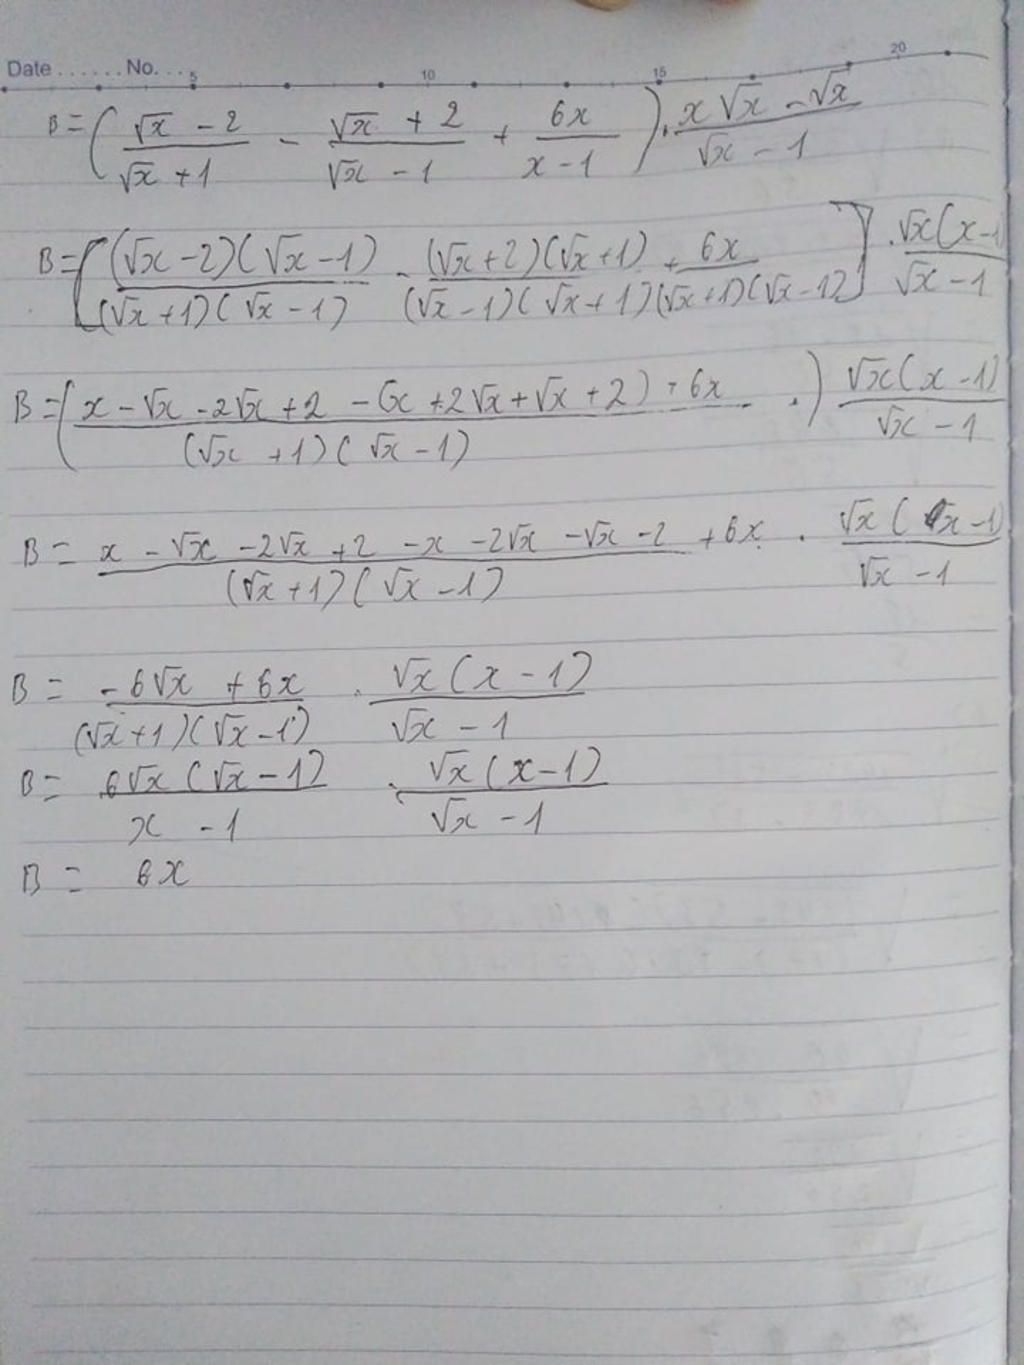 Date ...... No. ... 5 10 15 20
B = ( (√x - 2)/(√x + 1) - (√x + 2)/(√x - 1) + 6x/(x - 1) ) . (x√x - √x)/(√x - 1)
B = [ (√x - 2)(√x - 1)/(√x + 1)(√x - 1) - (√x + 2)(√x + 1)/(√x - 1)(√x + 1) + 6x/(√x + 1)(√x - 1) ] . √x(x - 1/(√x - 1)
B = ( (x - √x - 2√x + 2 - (x + 2√x + √x + 2) + 6x)/(√x + 1)(√x - 1) . ) √x(x - 1)/(√x - 1)
B = (x - √x - 2√x + 2 - x - 2√x - √x - 2 + 6x)/(√x + 1)(√x - 1) . √x(x - 1)/(√x - 1)
B = (-6√x + 6x)/(√x + 1)(√x - 1) . √x(x - 1)/(√x - 1)
B = 6√x(√x - 1)/(x - 1) . √x(x - 1)/(√x - 1)
B = 6x